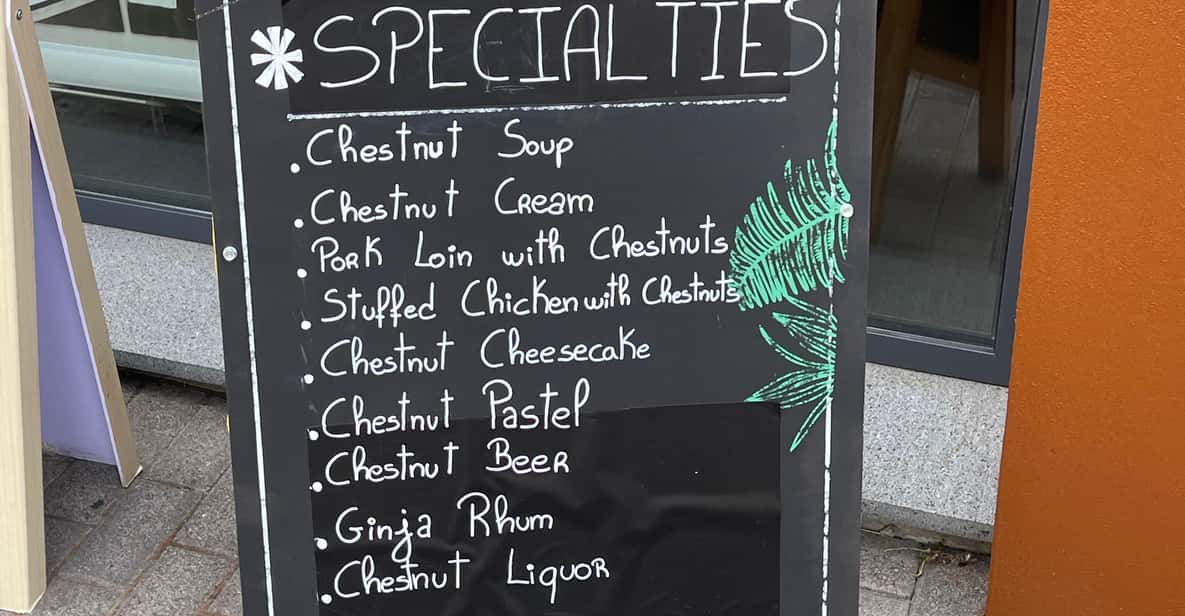 SPECIALTIES
. Chestnut Soup
. Chestnut Cream
. Pork Loin with Chestnuts
. Stuffed Chicken with Chestnuts
. Chestnut Cheesecake
. Chestnut Pastel
. Chestnut Beer
. Ginja Rhum
. Chestnut Liquor